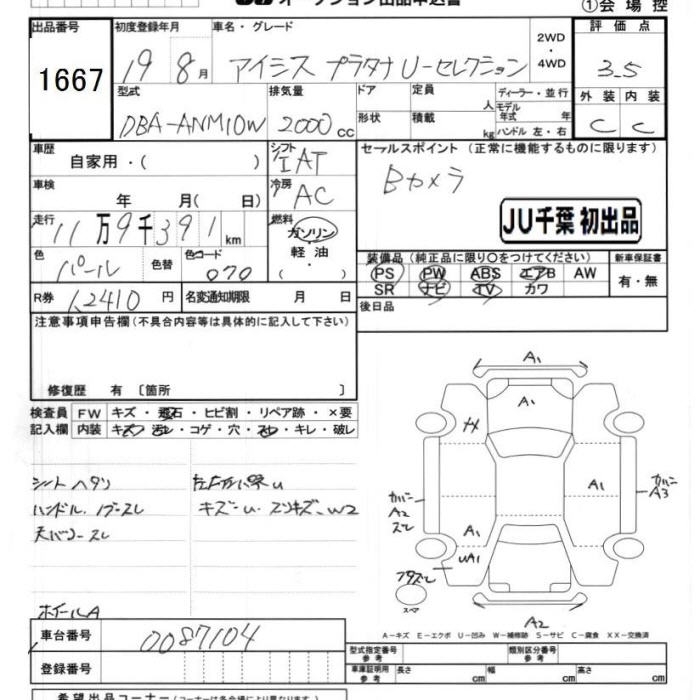 オークション出品申込書
①会場控
出品番号 初度登録年月 車名・グレード 2WD・4WD 評価点
1667 19 8月 アイシス プラタナ U-セレクション 3.5
型式 排気量 ドア 定員 人 ディーラー・並行 外装 内装
DBA-ANM10W 2000 cc 形状 積載 kg モデル年式 年 ハンドル 左・右 C C
車歴 自家用・( ) シフト IAT セールスポイント (正常に機能するものに限ります)
車検 年 月( 日) 冷房 AC Bカメラ
JU千葉 初出品
走行 11万9千391km 燃料 ガソリン・軽油・( )
色 パール 色替 色コード 070
装備品 (純正品に限り○をつけてください) 新車保証書
PS PW ABS エアB AW 有・無
SR ナビ TV カワ
R券 12410円 名変通知期限 月 日 後日品
注意事項申告欄 (不具合内容等は具体的に記入して下さい)
修復歴 有 〔箇所 〕
検査員 FW キズ・飛石・ヒビ割・リペア跡・×要
記入欄 内装 キズ 汚レ・コゲ・穴・スレ・キレ・破レ
シート ヘタリ
ハンドル、ノブースレ
キズ-U・スリキズ、W2
ホイールA
A1
A1
カバー A2 スレ
A1
カバー A3
A1
UA1
スペア
A2
A-キズ E-エクボ U-凹み W-補修跡 S-サビ C-腐食 XX-交換済
車台番号 0087104
型式指定番号 参考 類別区分番号 参考
登録番号 車庫証明用 参考 長さ cm 幅 cm 高さ cm
希望出品コーナー